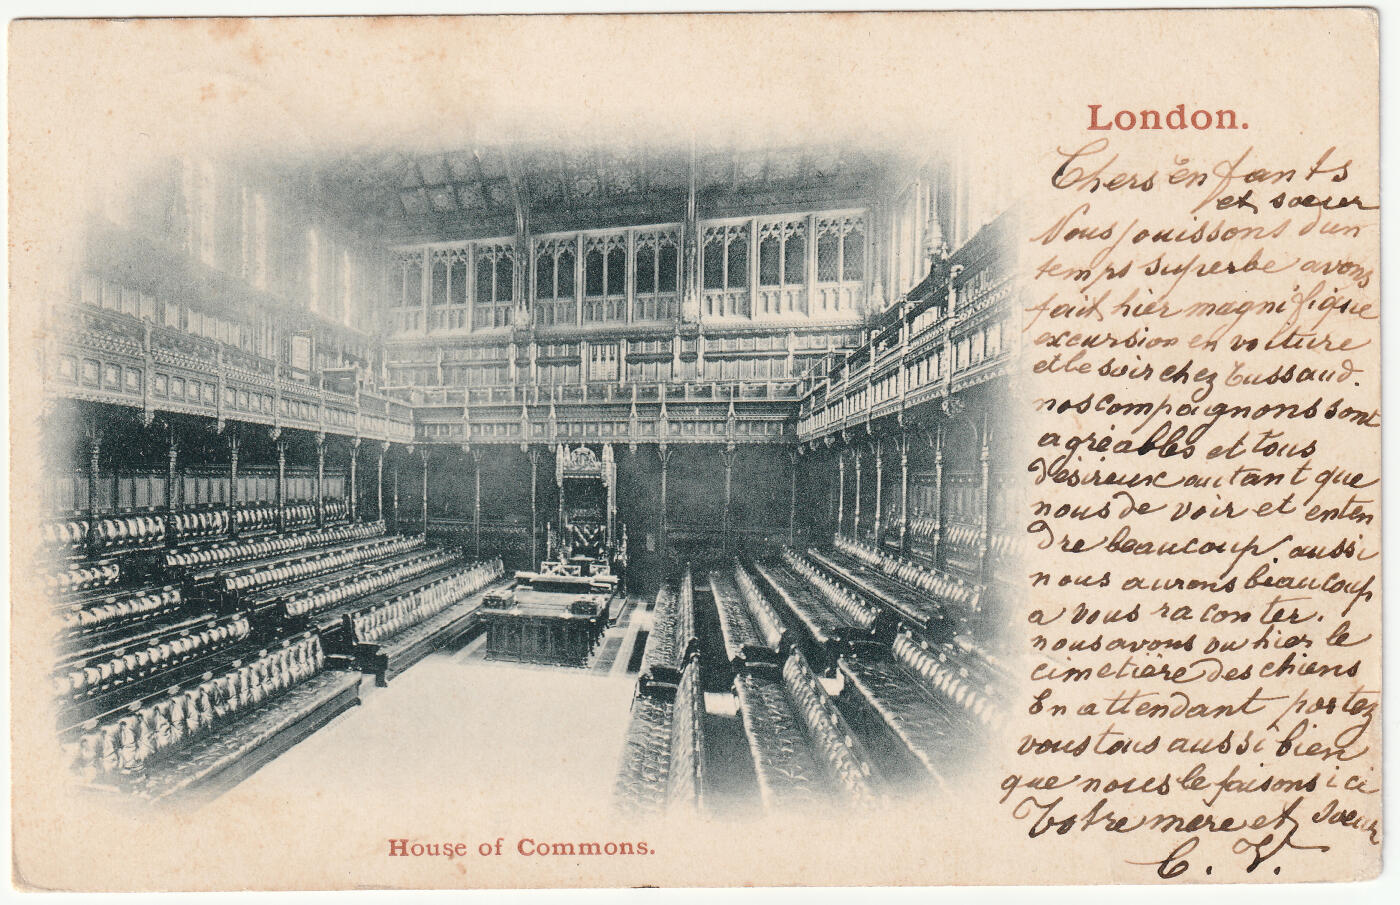 London.
Chers enfants
et soeur
Nous jouissons d'un
temps superbe avons
fait hier magnifique
excursion en voiture
et le soir chez Tussaud.
nos compagnons sont
agréables et tous
désireux autant que
nous de voir et enten
dre beaucoup. aussi
nous aurons beaucoup
a vous raconter.
nous avons vu hier le
cimetière des chiens
En attendant portez
vous tous aussi bien
que nous le faisons ici
Votre mère et soeur
C. V.
House of Commons.